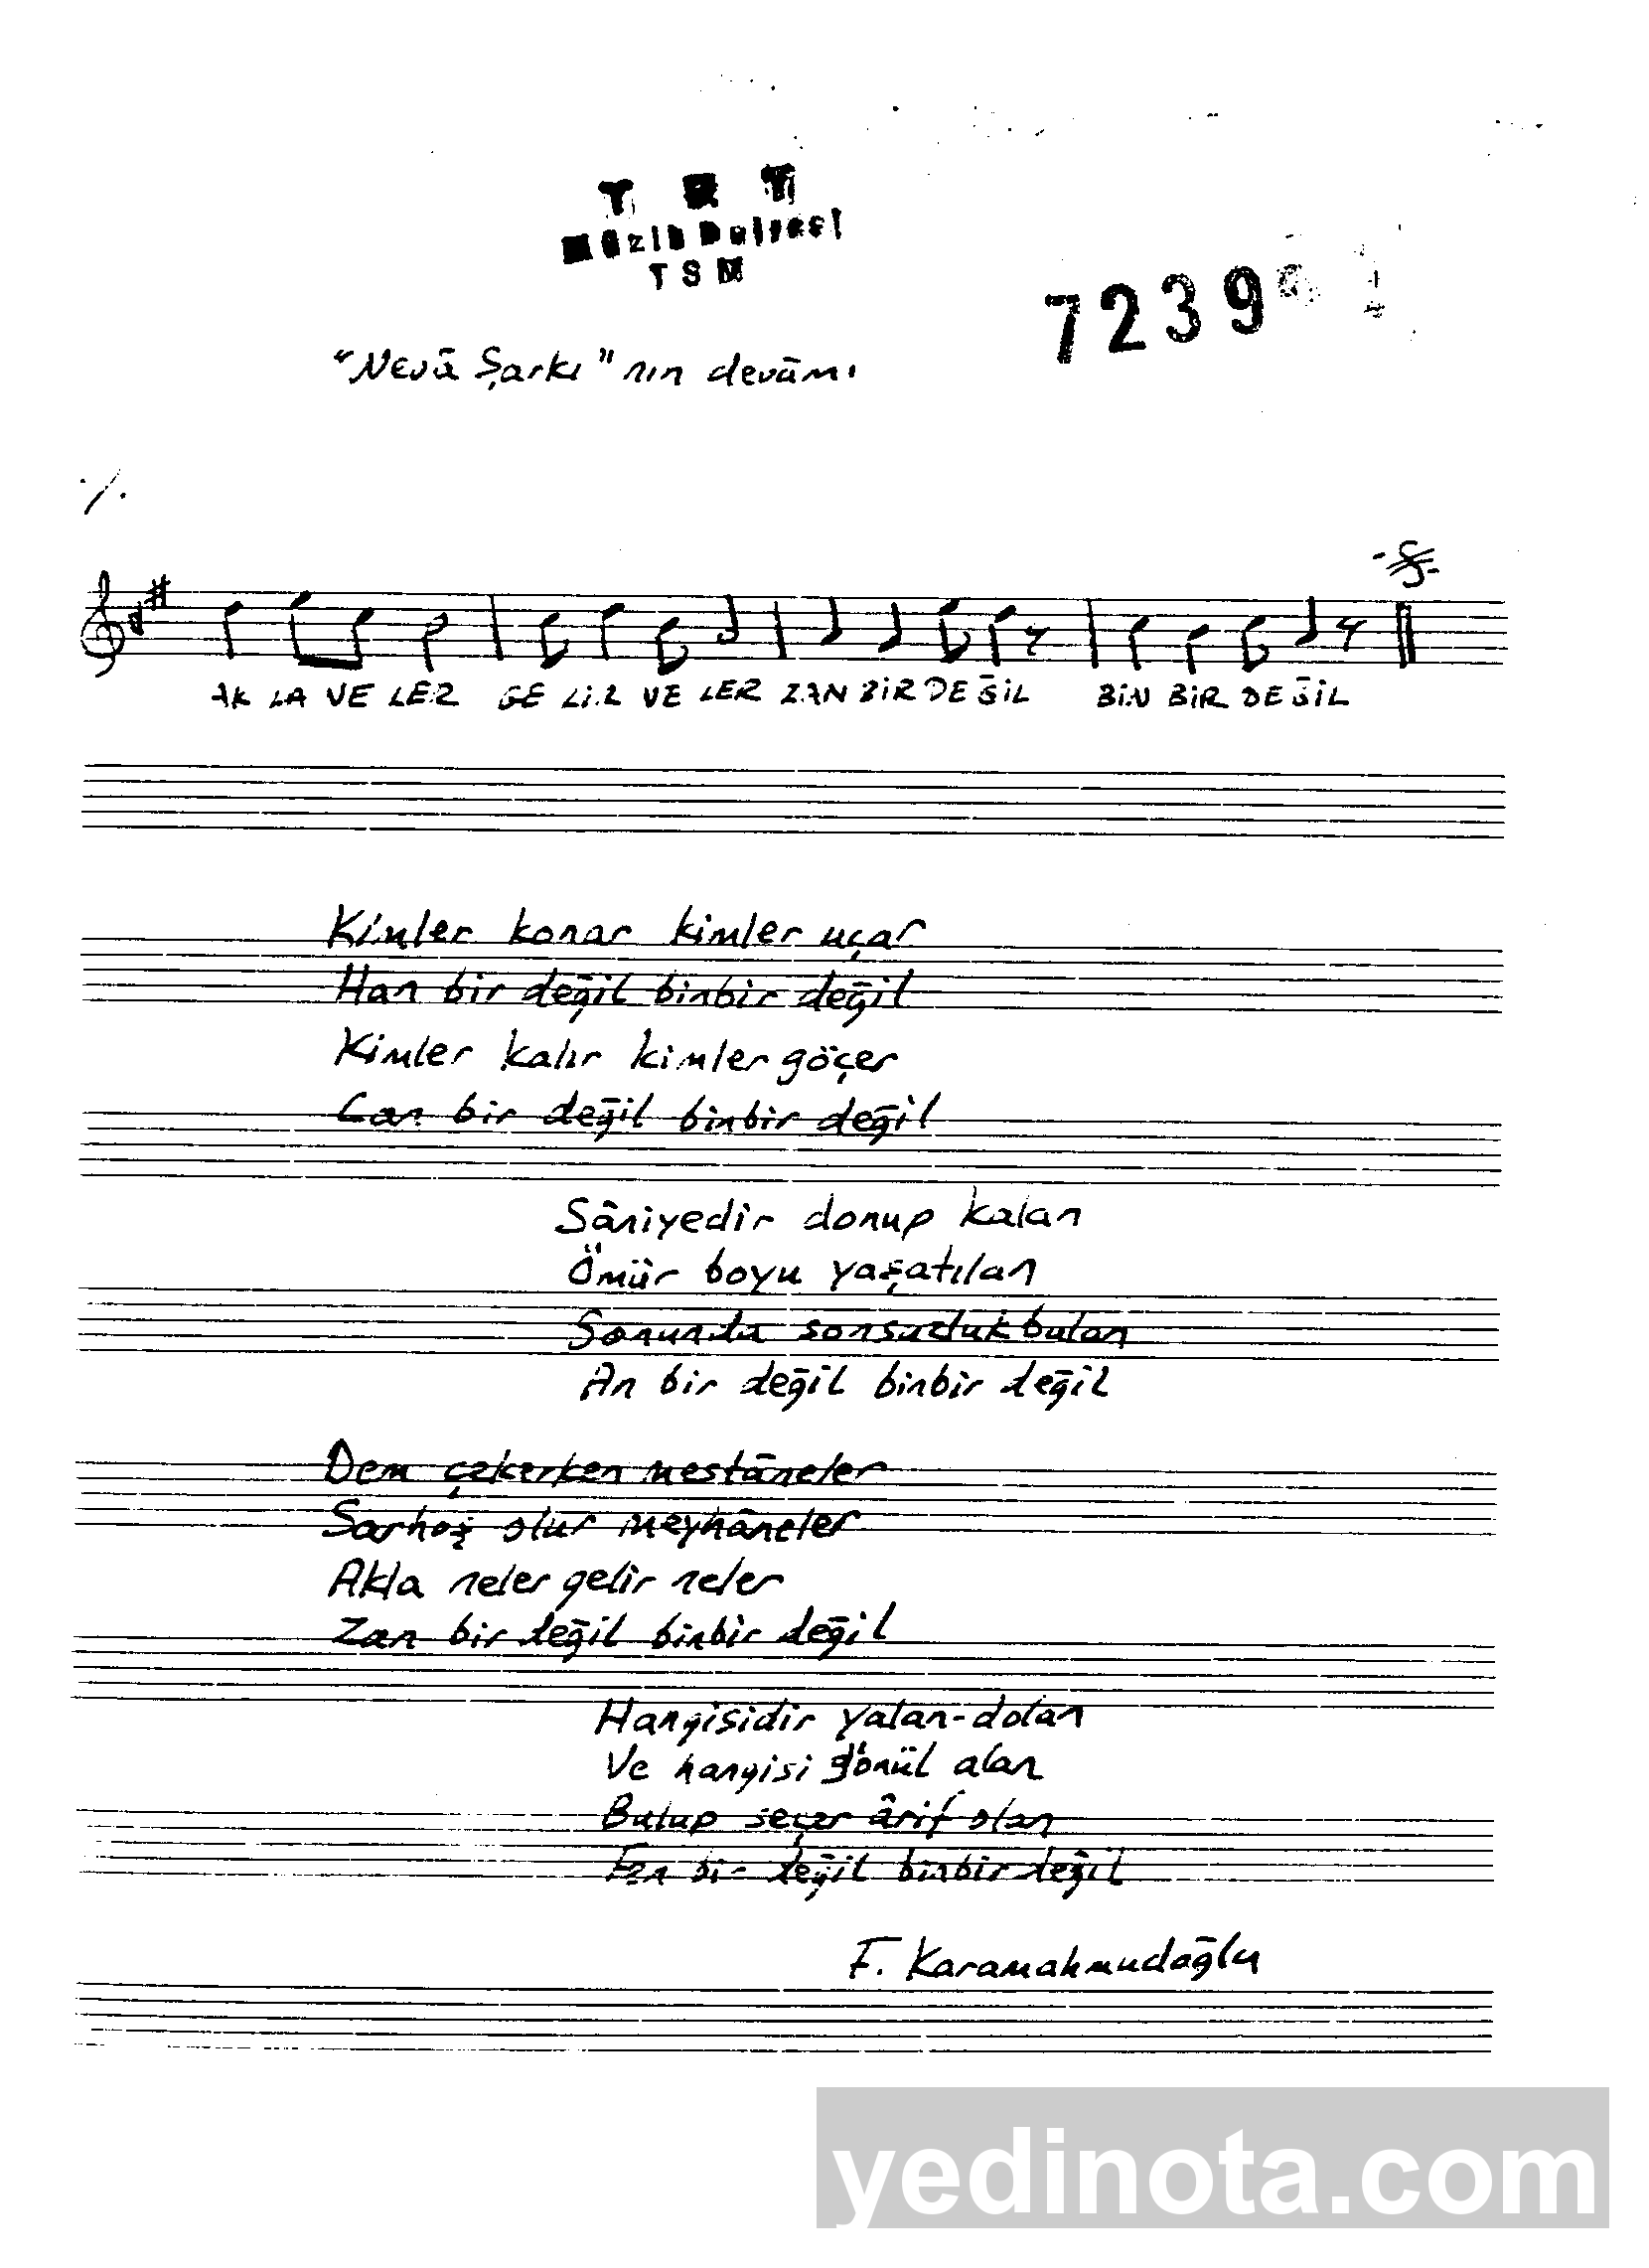 TRT
Müzik Dairesi
TSM
7239
"Nevâ Şarkı"nın devâmı
./.
AK LA VE LER GE LİR VE LER ZAN BİR DE ĞİL BİN BİR DE ĞİL
Kimler konar kimler uçar
Han bir değil binbir değil
Kimler kalır kimler göçer
Can bir değil binbir değil
Sâniyedir donup kalan
Ömür boyu yaşatılan
Sonunda sonsuzluk bulan
An bir değil binbir değil
Dem çekerken mestâneler
Sarhoş olur meyhâneler
Akla neler gelir neler
Zan bir değil binbir değil
Hangisidir yalan-dolan
Ve hangisi gönül alan
Bulup seçer ârif olan
Fen bir değil binbir değil
F. Karamahmudoğlu
yedinota.com